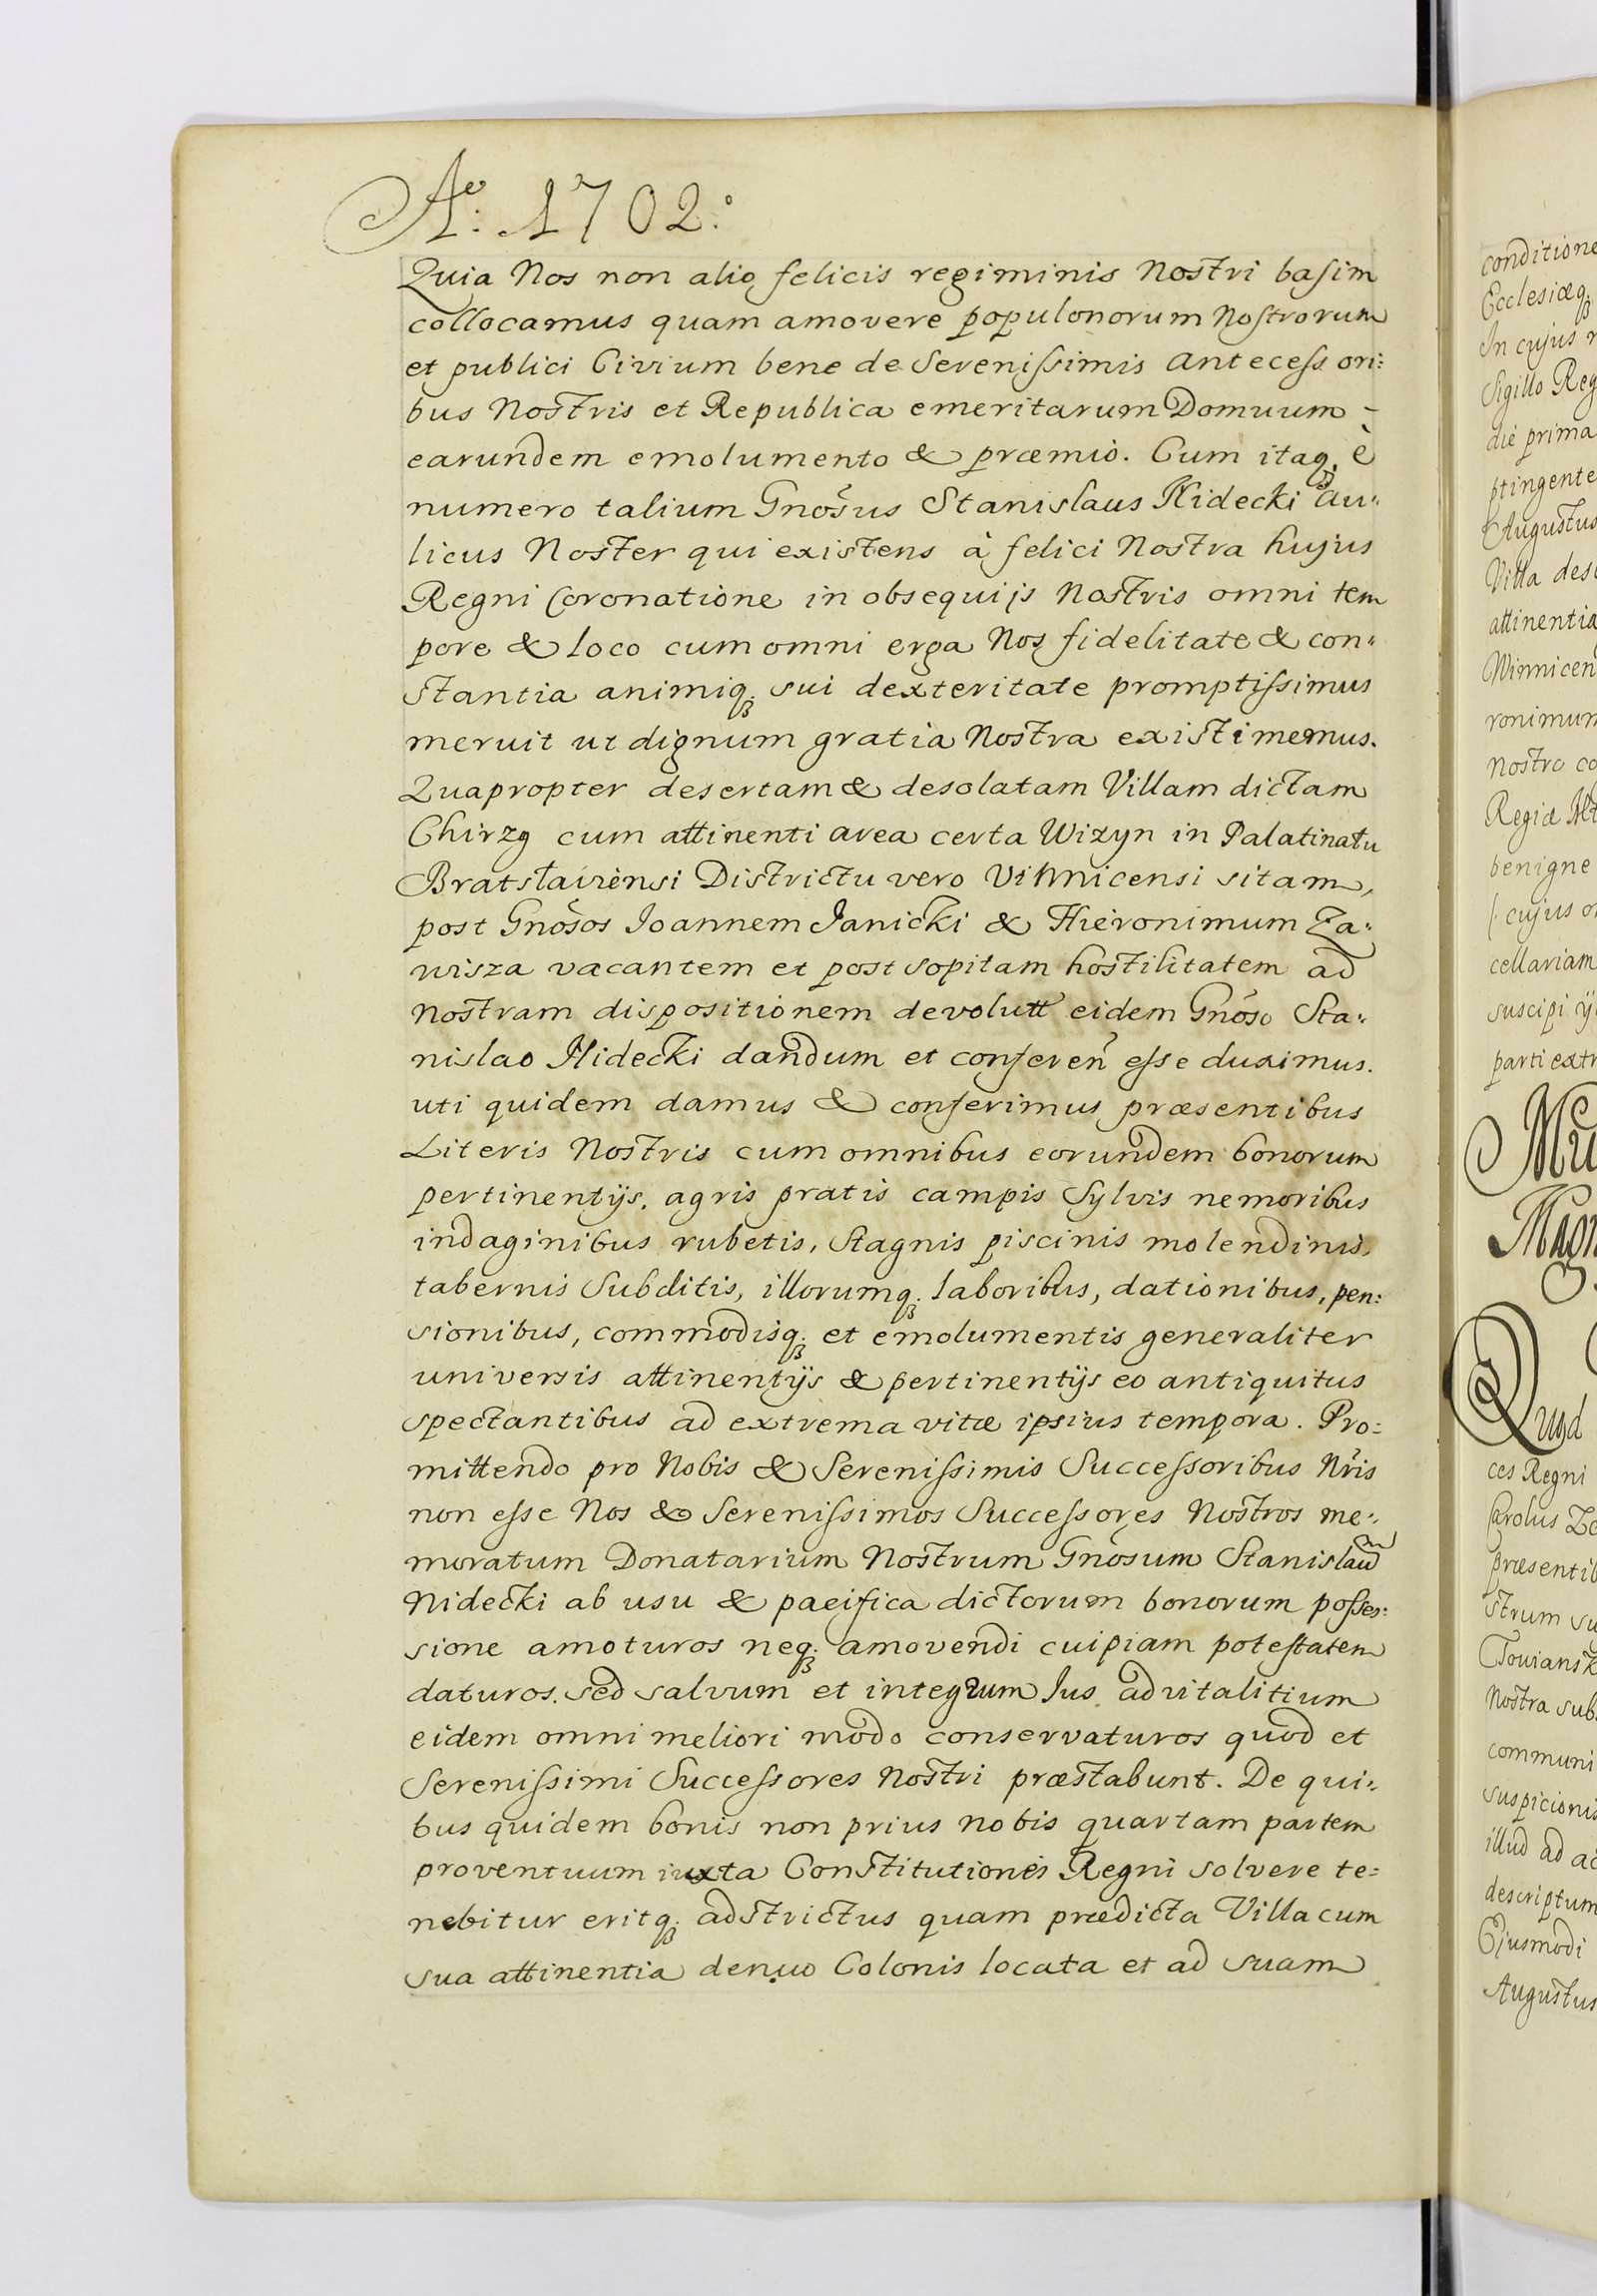 Aº. 1702.
Quia Nos non alio felicis regiminis Nostri basim
collocamus quam amovere populonorum Nostrorum
et publici Civium bene de Serenissimis Antecessori:
bus Nostris et Republica emeritarum Domuum –
earundem emolumento & præmio. Cum itaq. è
numero talium Gnõsus Stanislaus Nidecki Au:
licus Noster qui existens à felici Nostra hujus
Regni Coronatione in obsequijs Nostris omni tem
pore & loco cum omni erga Nos fidelitate & con:
stantia animiq. sui dexteritate promptissimus
meruit ut dignum gratia Nostra existimemus.
Quapropter desertam & desolatam Villam dictam
Chirzg cum attinenti area certa Wizyn in Palatinatu
Bratslaviensi Districtu vero Vinnicensi sitam,
post Gnõsos Joannem Janicki & Hieronimum Za:
wisza vacantem et post sopitam hostilitatem ad
Nostram dispositionem devolutt eidem Gnõso Sta:
nislao Nidecki dandum et conferen̄ esse duximus.
uti quidem damus & conferimus præsentibus
Literis Nostris cum omnibus eorundem bonorum
pertinentijs, agris pratis campis Sylvis nemoribus
indaginibus rubetis, Stagnis piscinis molendinis,
tabernis Subditis, illorumq. laboribus, dationibus, pen:
sionibus, commodisq. et emolumentis generaliter
universis attinentijs & pertinentijs eo antiquitus
spectantibus ad extrema vitæ ipsius tempora. Pro:
mittendo pro Nobis & Serenissimis Successoribus Nr̃is
non esse Nos & Serenissimos Successores Nostros me:
moratum Donatarium Nostrum Gnõsum Stanislaum
Nidecki ab usu & pacifica dictorum bonorum posses:
sione amoturos neq. amovendi cuipiam potestatem
daturos. sed salvum et integrum Jus advitalitium
eidem omni meliori modo conservaturos quod et
Serenissimi Successores Nostri præstabunt. De qui:
bus quidem bonis non prius nobis quartam partem
proventuum iuxta Constitutiones Regni solvere te:
nebitur eritq. adstrictus quam prædicta Villa cum
sua attinentia denuo Colonis locata et ad suam
conditione
Ecclesiæq.
In cujus
Sigillo Reg
die prima
ptingente
Augustus
Villa des
attinentia
Winnicen
ronimum
nostro co
Regiæ
benigne
cujus
cellariam
suscipi
parti extr
Mu
Magn
Quod
ces Regni
Carolus
præsentib
strum su
Towiansk
Nostra sub
communi
suspicionis
illud ad ac
descriptum
Ejusmodi
Augustus